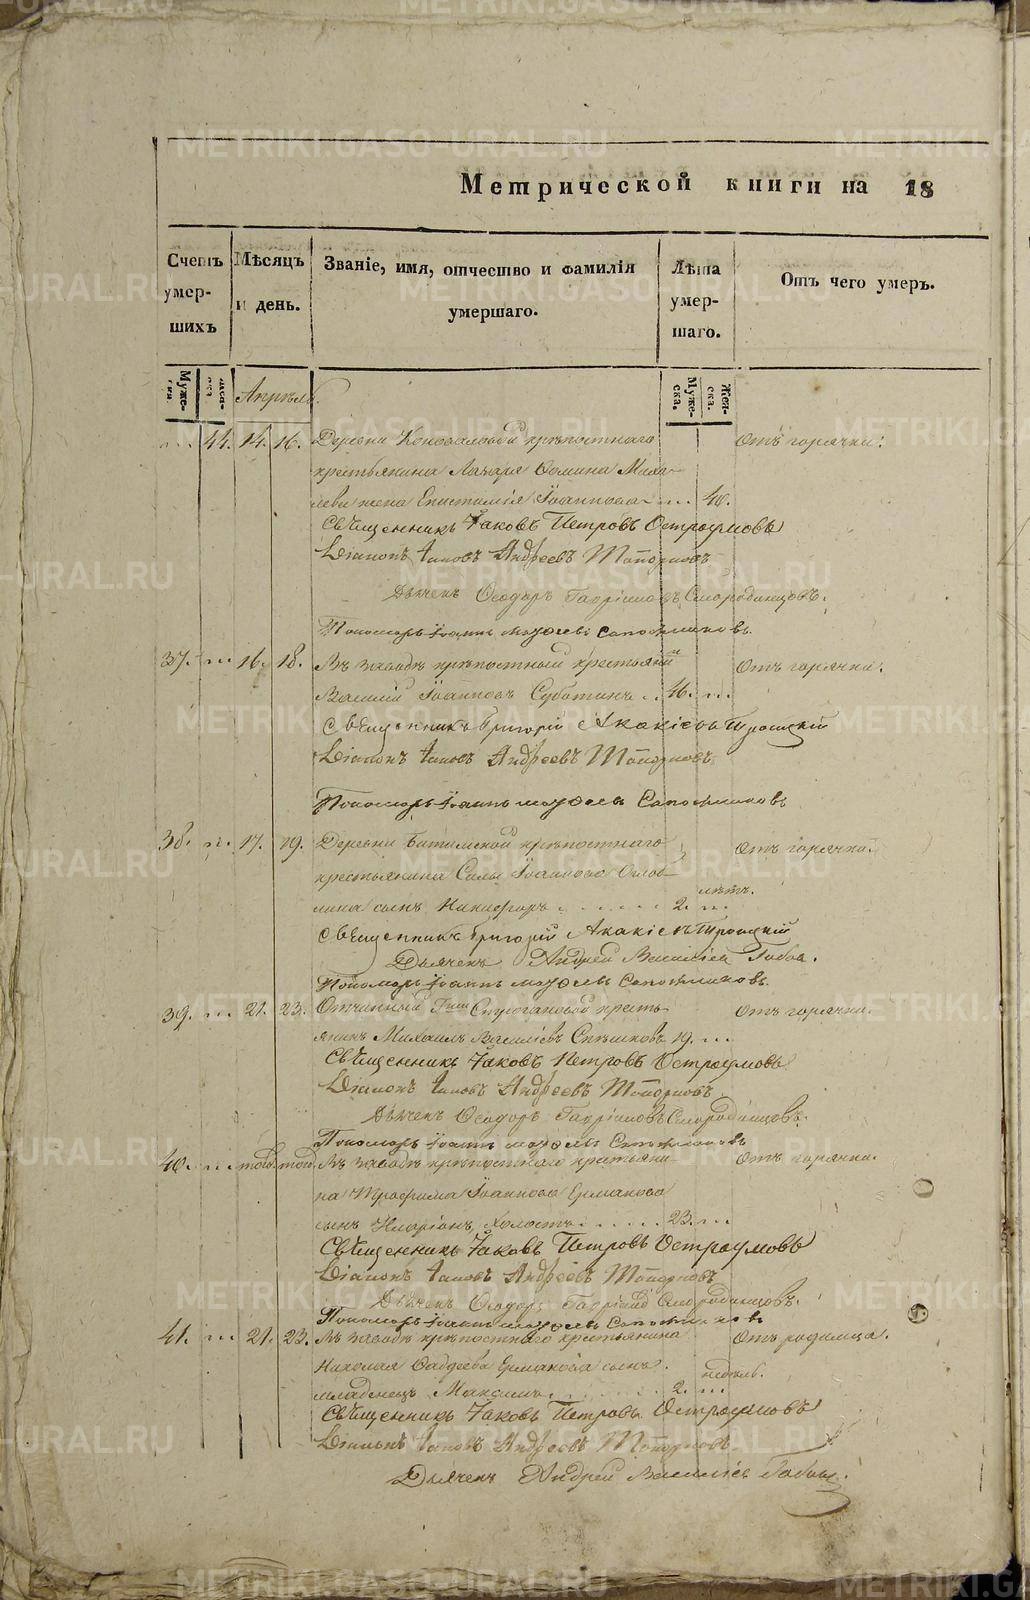 Метрической книги на 18
Счетъ умер-шихъ
Мѣсяцъ и день.
Званіе, имя, отчество и фамилія умершаго.
Лѣта умер-шаго.
Отъ чего умеръ.
Муже-
Муже-ска.
Жен-ска.
Апрѣль.
44. 14. 16. Деревни Коноваловой крѣпостнаго Отъ горячки.
крестьянина Лазаря Ѳомина
жена Епистимія Іоаннова 40.
Священникъ Іаковъ Петровъ Остроумовъ
Діаконъ Іаковъ Андреевъ Топорковъ
Дьячекъ Ѳеодоръ Гавріиловъ Смородинцовъ.
Пономарь Іоаннъ Матѳеевъ Сапожниковъ.
37. 16. 18. Въ заводѣ крѣпостный крестьянинъ Отъ горячки.
Василій Іоанновъ Суботинъ 46.
Священникъ Григорій Акакіевъ Троицкій
Діаконъ Іаковъ Андреевъ Топорковъ
Пономарь Іоаннъ Матѳеевъ Сапожниковъ
38. 17. 19. Деревни Битимской крѣпостнаго Отъ горячки.
крестьянина Силы Іоаннова
сынъ Никифоръ 2. лѣтъ.
Священникъ Григорій Акакіевъ Троицкій
Дьячекъ Андрей Василіевъ Бабинъ.
Пономарь Іоаннъ Матѳеевъ Сапожниковъ.
39. 21. 23. Отчинный Гжи Строгановой кресть- Отъ горячки.
янинъ Михаилъ Василіевъ Спѣшковъ 19.
Священникъ Іаковъ Петровъ Остроумовъ
Діаконъ Іаковъ Андреевъ Топорковъ
Дьячекъ Ѳеодоръ Гавріиловъ Смородинцовъ.
Пономарь Іоаннъ Матѳеевъ Сапожниковъ
40. того. того. Въ заводѣ крѣпостнаго крестьяни- Отъ горячки.
на Трофима Іоаннова Ермакова
сынъ Иларіонъ, холостъ 23.
Священникъ Іаковъ Петровъ Остроумовъ
Діаконъ Іаковъ Андреевъ Топорковъ
Дьячекъ Ѳеодоръ Гавріиловъ Смородинцовъ.
Пономарь Іоаннъ Матѳеевъ Сапожниковъ
41. 21. 23. Въ заводѣ крѣпостнаго крестьянина Отъ родимца.
Николая Ѳаддеева Ермакова сынъ
младенецъ Максимъ 2. недѣль.
Священникъ Іаковъ Петровъ Остроумовъ
Діаконъ Іаковъ Андреевъ Топорковъ
Дьячекъ Андрей Василіевъ Бабинъ.
METRIKI.GASO-URAL.RU